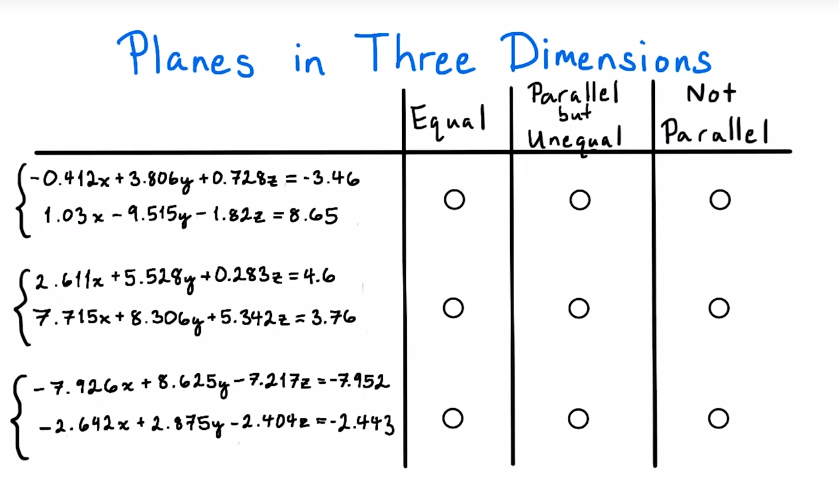 Planes in Three Dimensions
Equal
Parallel
but
Unequal
Not
Parallel
-0.412x + 3.806y + 0.728z = -3.46
1.03x - 9.515y - 1.82z = 8.65
2.611x + 5.528y + 0.283z = 4.6
7.715x + 8.306y + 5.342z = 3.76
-7.926x + 8.625y - 7.217z = -7.952
-2.642x + 2.875y - 2.404z = -2.443